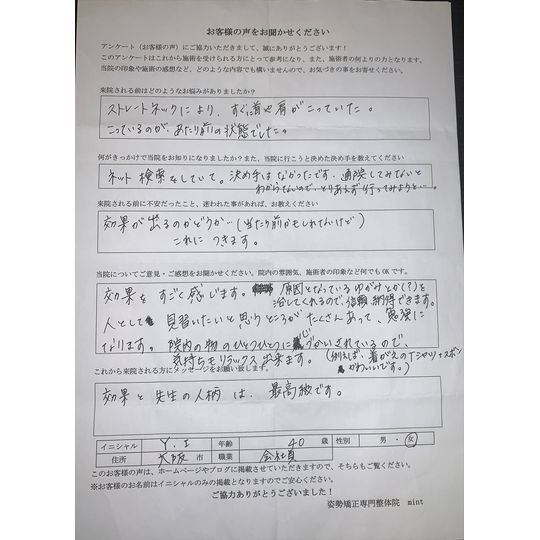 お客様の声をお聞かせください
アンケート（お客様の声）にご協力いただきまして、誠にありがとうございます！
このアンケートはこれから施術を受けられる方にとって参考になり、また、施術者の何よりの力となります。
当院の印象や施術の感想など、どのような内容でも構いませんので、お気づきの事をお寄せください。
来院される前はどのようなお悩みがありましたか？
ストレートネックにより、すぐに首や肩がこっていた。
こっているのが、あたり前の状態でした。
何がきっかけで当院をお知りになりましたか？また、当院に行こうと決めた決め手を教えてください
ネット検索をしていて。決め手はなかったです。通院してみないと
わからないので、とりあえず行ってみようと…。
来院される前に不安だったこと、迷われた事があれば、お教えください
効果が出るのかどうか…（当たり前かもしれないけど）
これにつきます。
当院についてご意見・ご感想をお聞かせください。院内の雰囲気、施術者の印象など何でもOKです。
効果をすごく感じます。原因となっているゆがみとか（？）を
治してくれるので、信頼納得できます。
人としても見習いたいと思うところがたくさんあって、勉強に
なります。院内の物のひとつひとつに
づかいされているので、
気持ちもリラックス出来ます。（例えば、着がえのTシャツ＋ズボン
かわいいです。）
これから来院される方にメッセージをお願い致します。
効果と先生の人柄は、最高級です。
イニシャル Y.I 年齢 40 歳 性別 男・女
住所 大阪 市 職業 会社員
このお客様の声は、ホームページやブログに掲載させていただきますので、そちらもご覧ください。
※お客様のお名前はイニシャルのみの掲載となりますのでご安心ください。
ご協力ありがとうございました！
姿勢矯正専門整体院 mint